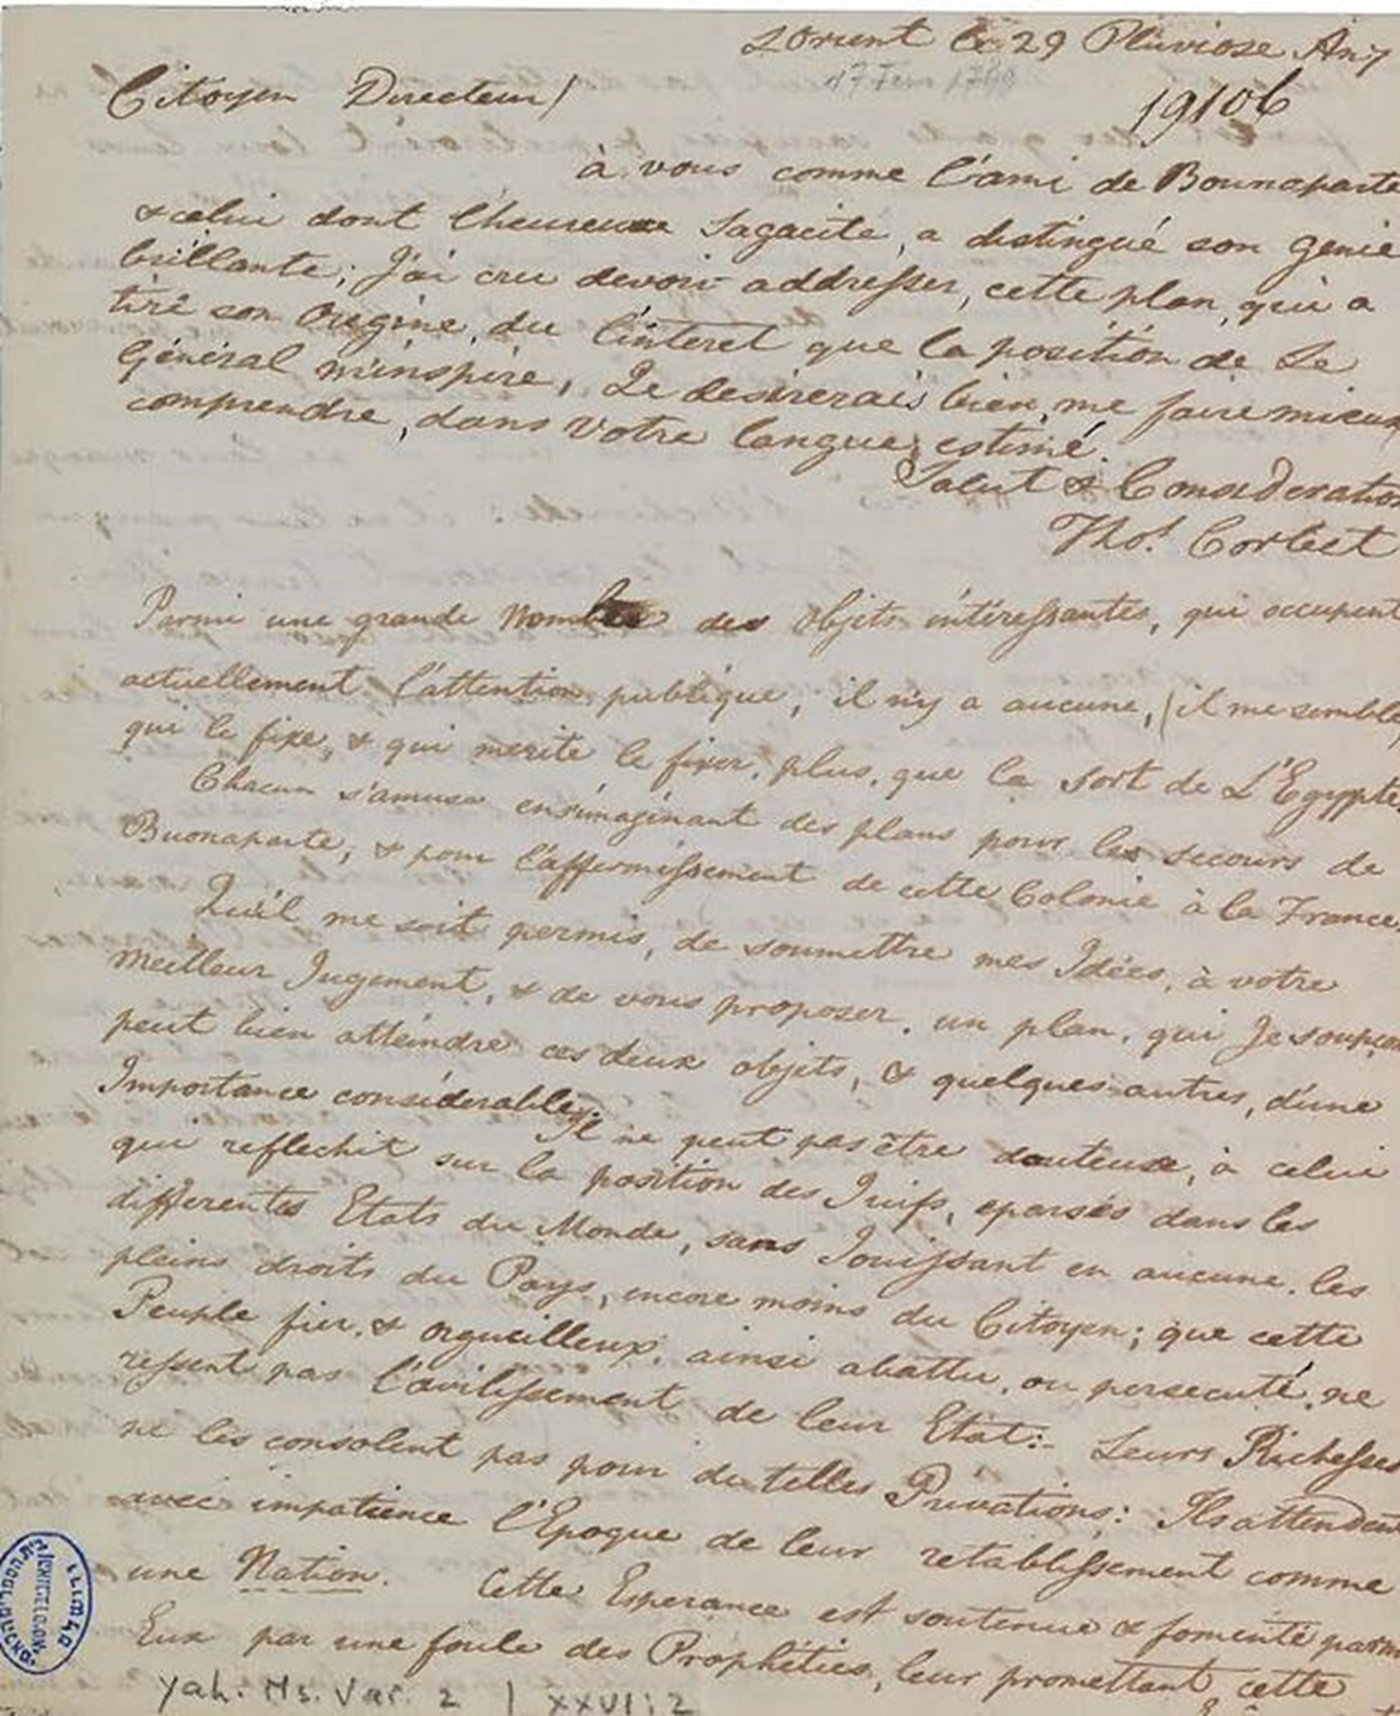 LOrient le 29 Pluviose An 7
17 Fevr 1799
Citoyen Directeur/
19106
à vous comme l'ami de Bounaparte
& celui dont l'heureuse Sagacité, a distingué son Genie
brillante; J'ai cru devoir addresser, cette plan, qui a
tiré son Origine, du l'interet que la position de Le
Général m'inspire, Je desirerais bien, me faire mieux
comprendre, dans Votre langue, estimé.
Salut & Consideration
Thos. Corbet
Parmi une grande nombre des Objets intéressantes, qui occupent
actuellement l'attention publique, il n'y a aucune, (il me semble)
qui le fixe, & qui merite le fixer, plus, que la Sort de L'Egypte
Chacun s'amuse en s'imaginant des plans pour les secours de
Buonaparte, & pour l'affermissement de cette Colonie à la France.
Qu'il me soit permis, de soumettre mes Idées, à votre
meilleur Jugement, & de vous proposer, un plan, qui Je soupçon
peut bien attéindre ces deux objets, & quelques autres, d'une
Importance considerables.
Il ne peut pas être douteuse, à celui
qui reflechit sur la position des Juifs, eparsés dans les
differentes Etats du Monde, sans Jouissant en aucune, les
pleins droits du Pays, encore moins du Citoyen; que cette
Peuple fier, & orgueilleux, ainsi abattu, ou persecuté, ne
ressent pas l'avilissement de leur Etat:- Leurs Richesses
ne les consolent pas pour de telles Privations: Ils attendent
avec impatience l'Epoque de leur retablissement comme
une Nation. Cette Esperance est soutenue & fomenté parmi
Eux par une foule des Prophéties, leur promettant cette
Yah. Ms. Var. 2 | XXVI:2